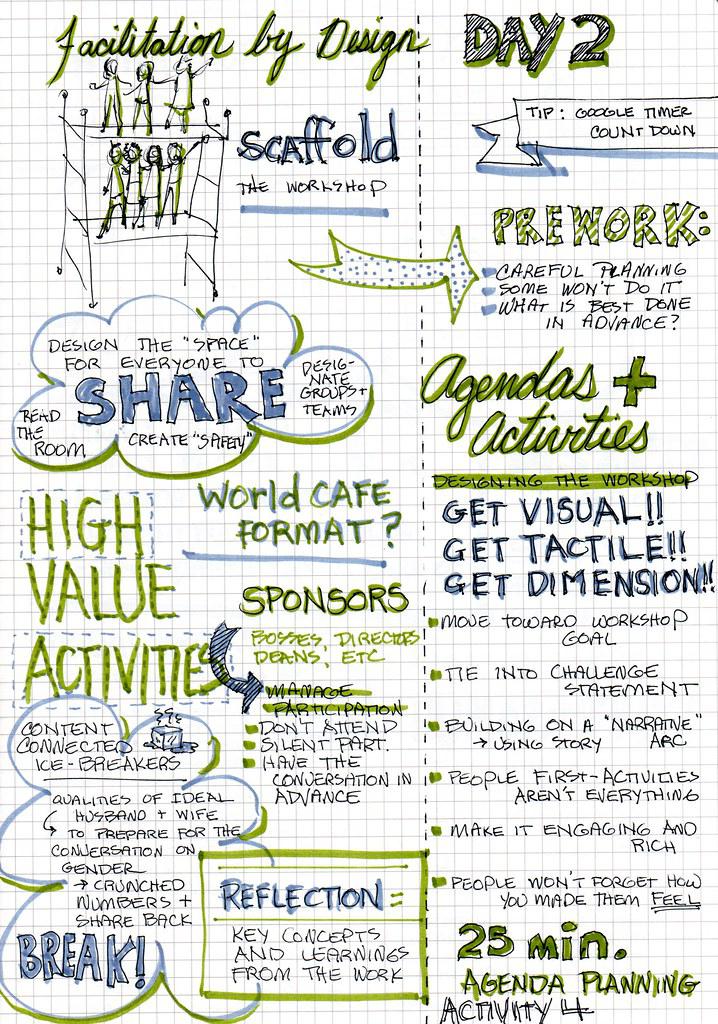 Facilitation by Design
SCAFFOLD
THE WORKSHOP
DESIGN THE "SPACE"
FOR EVERYONE TO
SHARE
DESIG-
NATE
GROUPS +
TEAMS
READ
THE
ROOM
CREATE "SAFETY"
World CAFE
FORMAT?
HIGH
VALUE
ACTIVITIES
SPONSORS
BOSSES, DIRECTORS
DEANS, ETC
MANAGE
PARTICIPATION
DON'T ATTEND
SILENT PART.
HAVE THE
CONVERSATION IN
ADVANCE
CONTENT
CONNECTED
ICE-BREAKERS
QUALITIES OF IDEAL
HUSBAND + WIFE
→ TO PREPARE FOR THE
CONVERSATION ON
GENDER
→ CRUNCHED
NUMBERS +
SHARE BACK
BREAK!
REFLECTION =
KEY CONCEPTS
AND LEARNINGS
FROM THE WORK
DAY 2
TIP: GOOGLE TIMER
COUNT DOWN
PREWORK:
CAREFUL PLANNING
SOME WON'T DO IT
WHAT IS BEST DONE
IN ADVANCE?
Agendas +
Activities
DESIGNING THE WORKSHOP
GET VISUAL!!
GET TACTILE!!
GET DIMENSION!!
MOVE TOWARD WORKSHOP
GOAL
TIE INTO CHALLENGE
STATEMENT
BUILDING ON A "NARRATIVE"
→ USING STORY ARC
PEOPLE FIRST-ACTIVITIES
AREN'T EVERYTHING
MAKE IT ENGAGING AND
RICH
PEOPLE WON'T FORGET HOW
YOU MADE THEM FEEL
25 min.
AGENDA PLANNING
ACTIVITY 4